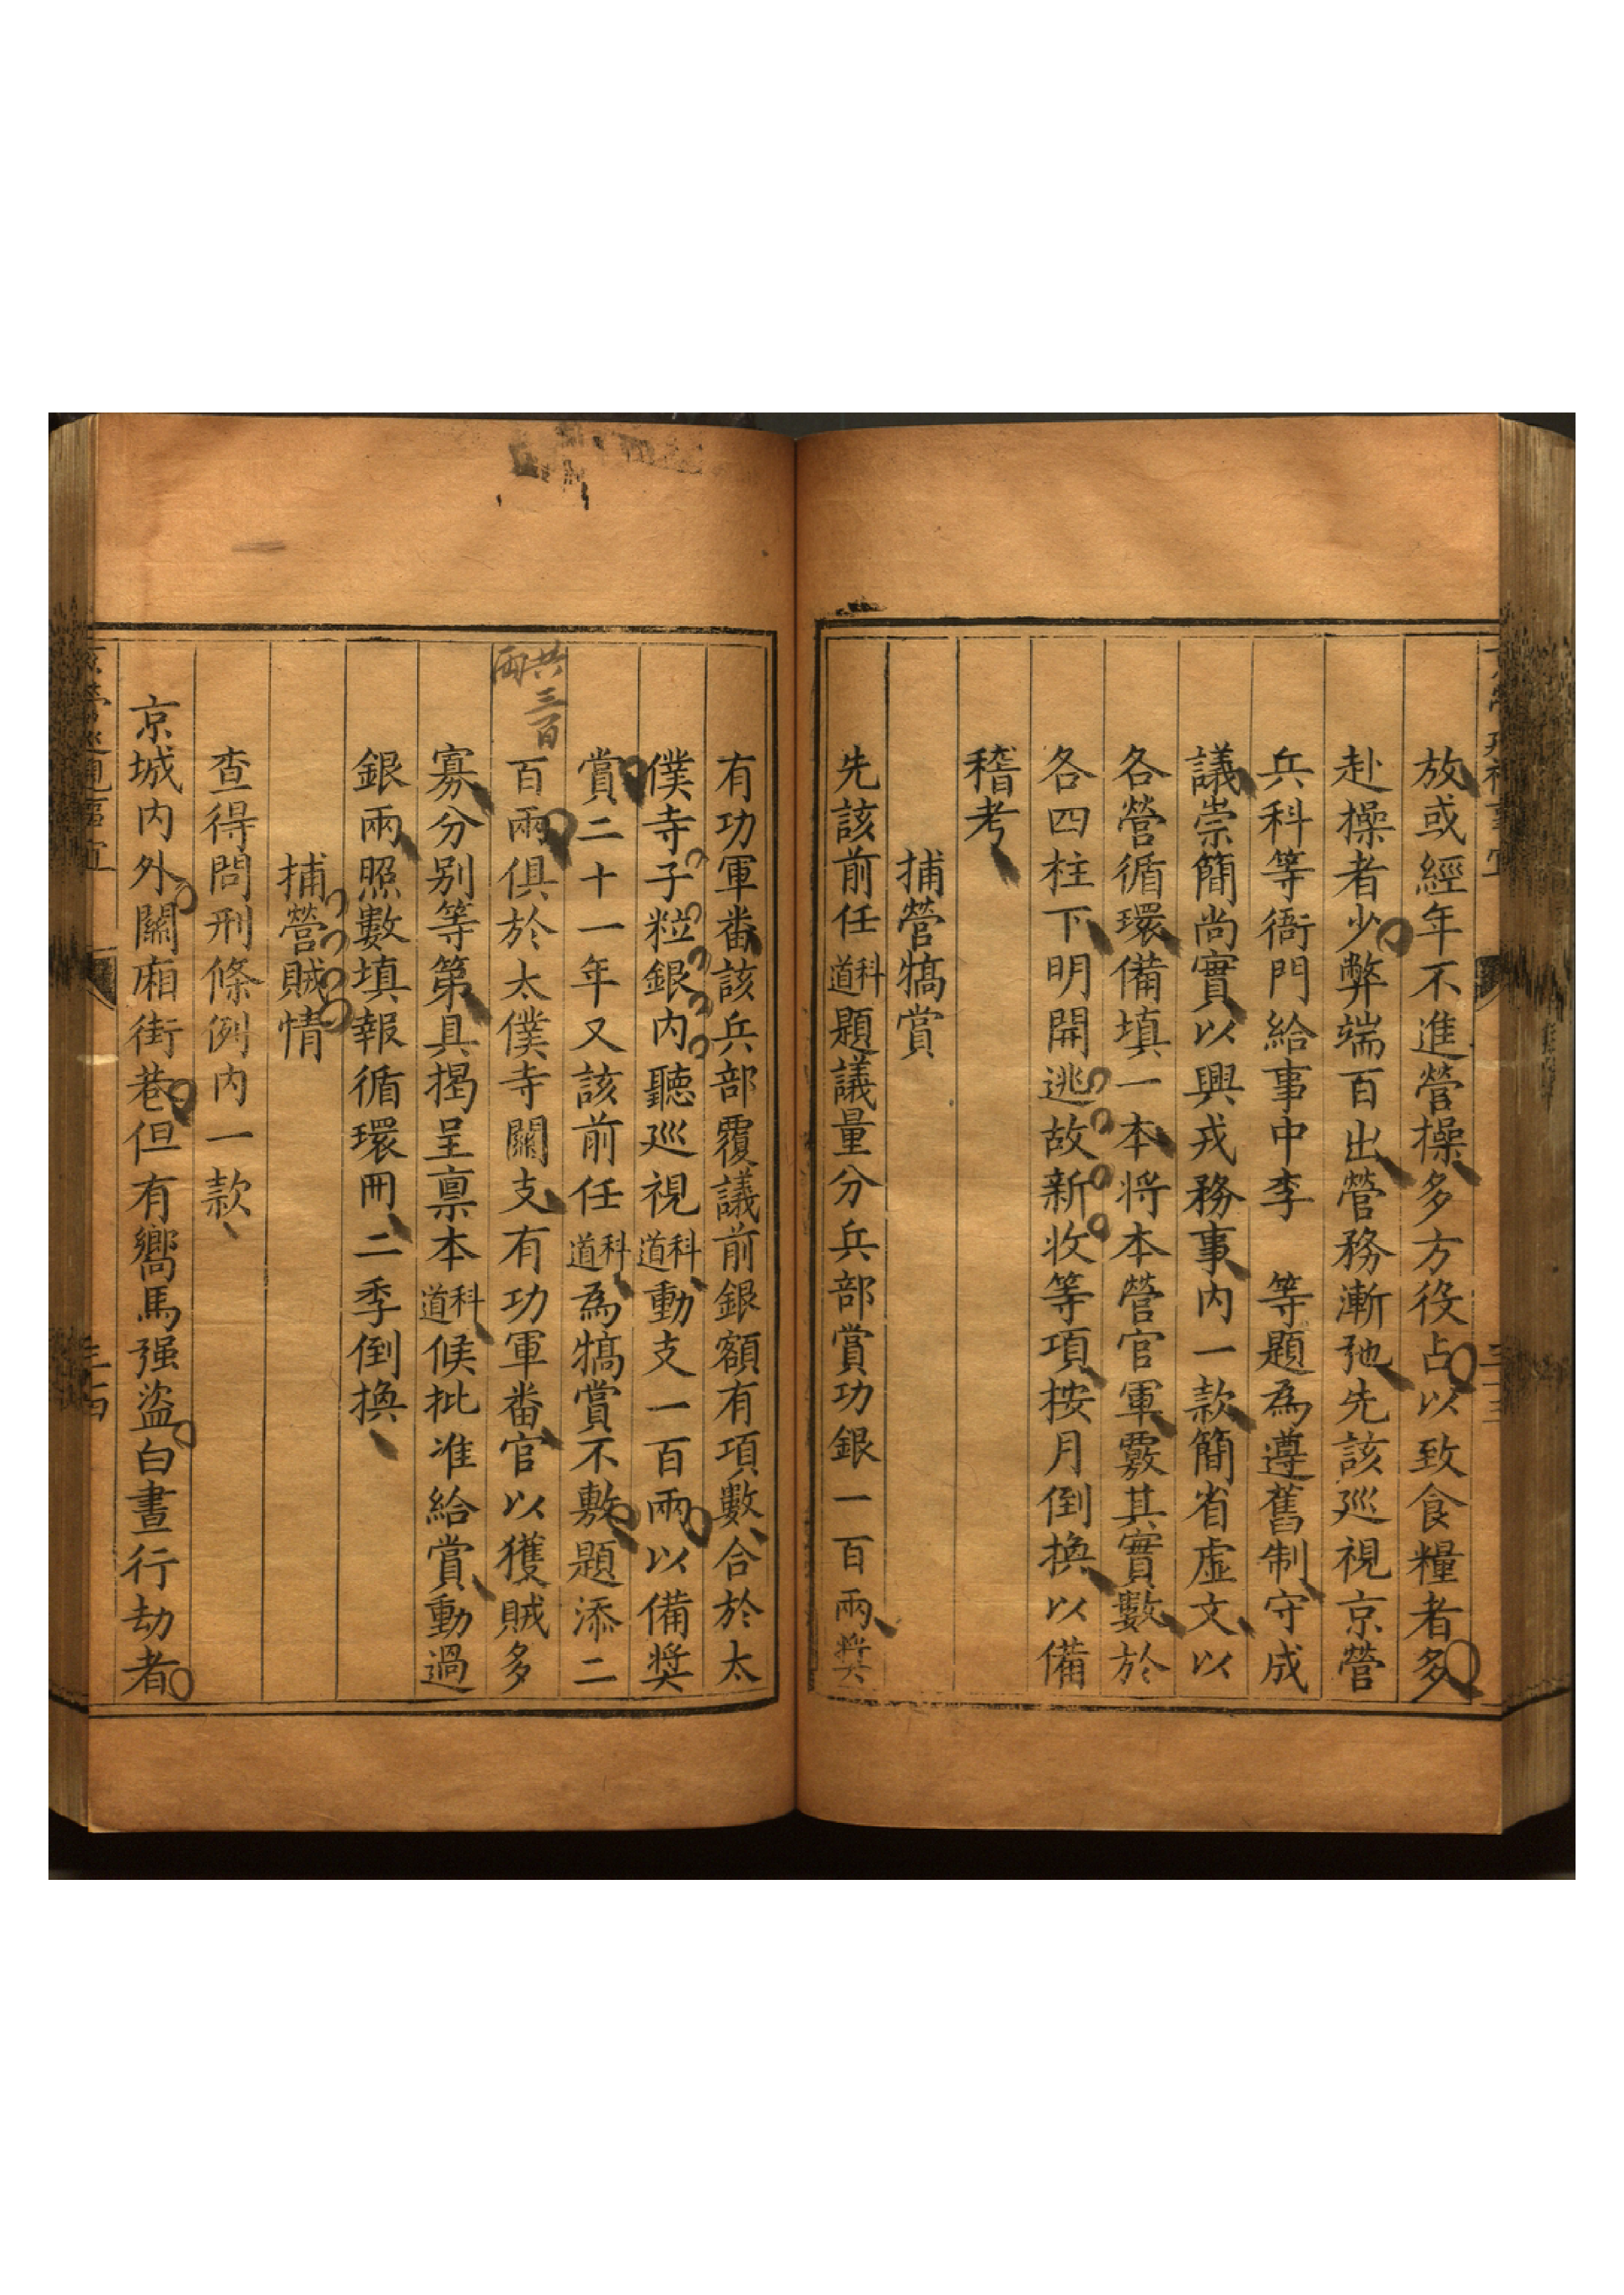 放或經年不進營操多方役占以致食糧者多
赴操者少弊端百出營務漸弛先該巡視京營
兵科等衙門給事中李　等題為遵舊制守成
議崇簡尚實以興戎務事内一款簡省虛文以
各營循環備填一本將本營官軍覈其實數於
各四柱下明開逃故新收等項按月倒換以備
稽考
捕營犒賞
先該前任科道題議量分兵部賞功銀一百兩奬
有功軍番該兵部覆議前銀額有項數合於太
僕寺子粒銀内聽巡視科道動支一百兩以備奬
賞二十一年又該前任科道為犒賞不敷題添二
百兩俱於太僕寺關支有功軍番官以獲賊多
共三百兩
寡分别等第具揭呈禀本科道候批准給賞動過
銀兩照數填報循環冊二季倒換
捕營賊情
查得問刑條例内一款
京城内外關廂街巷但有嚮馬强盗白晝行劫者
京營巡視事宜
三十四